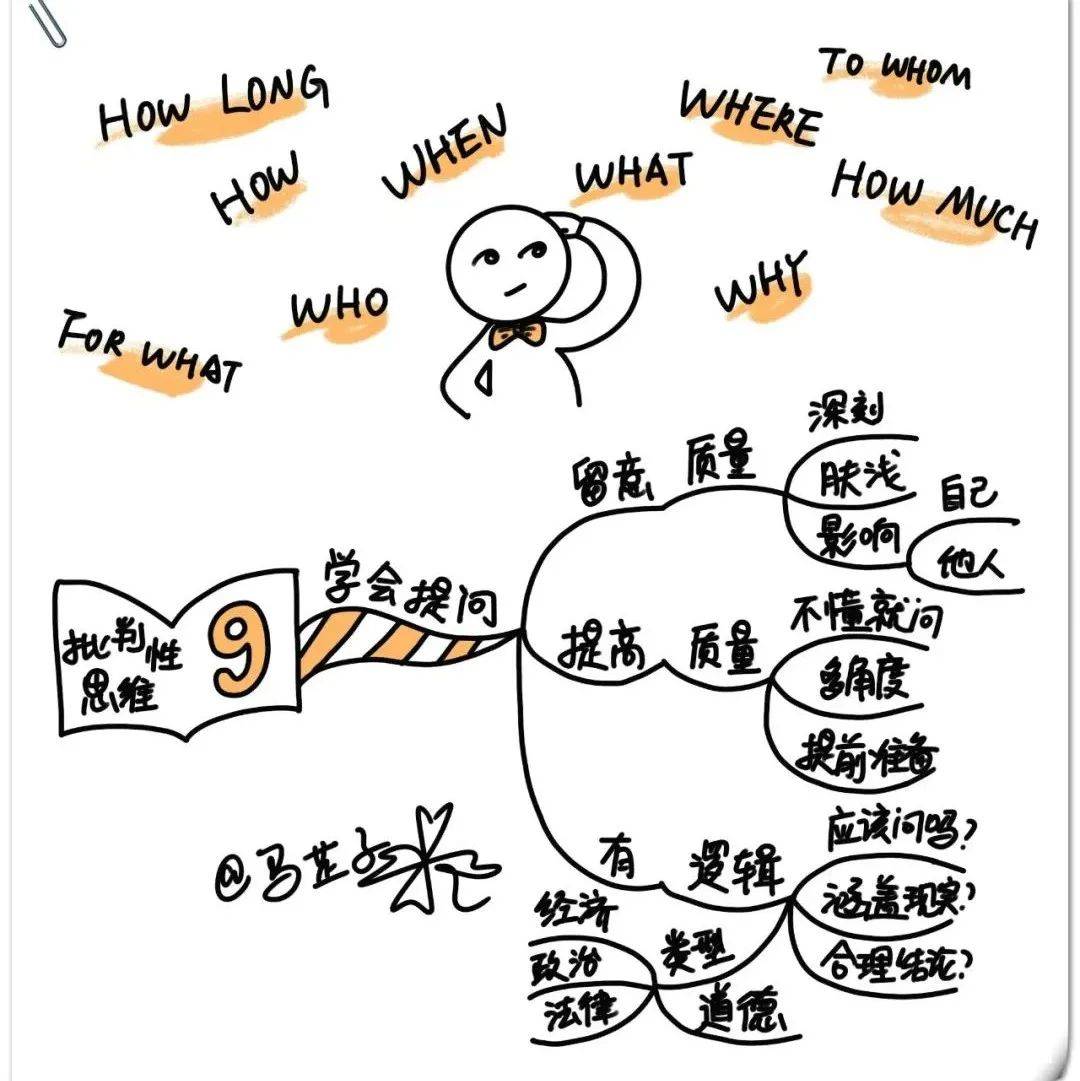 HOW LONG
TO WHOM
WHERE
WHEN
HOW
WHAT
HOW MUCH
WHO
WHY
FOR WHAT
批判性
思维
9
学会提问
留意
质量
深刻
肤浅
影响
自己
他人
提高
质量
不懂就问
多角度
提前准备
有
逻辑
应该问吗?
涵盖现实?
合理结论?
类型
经济
政治
法律
道德
@马芷